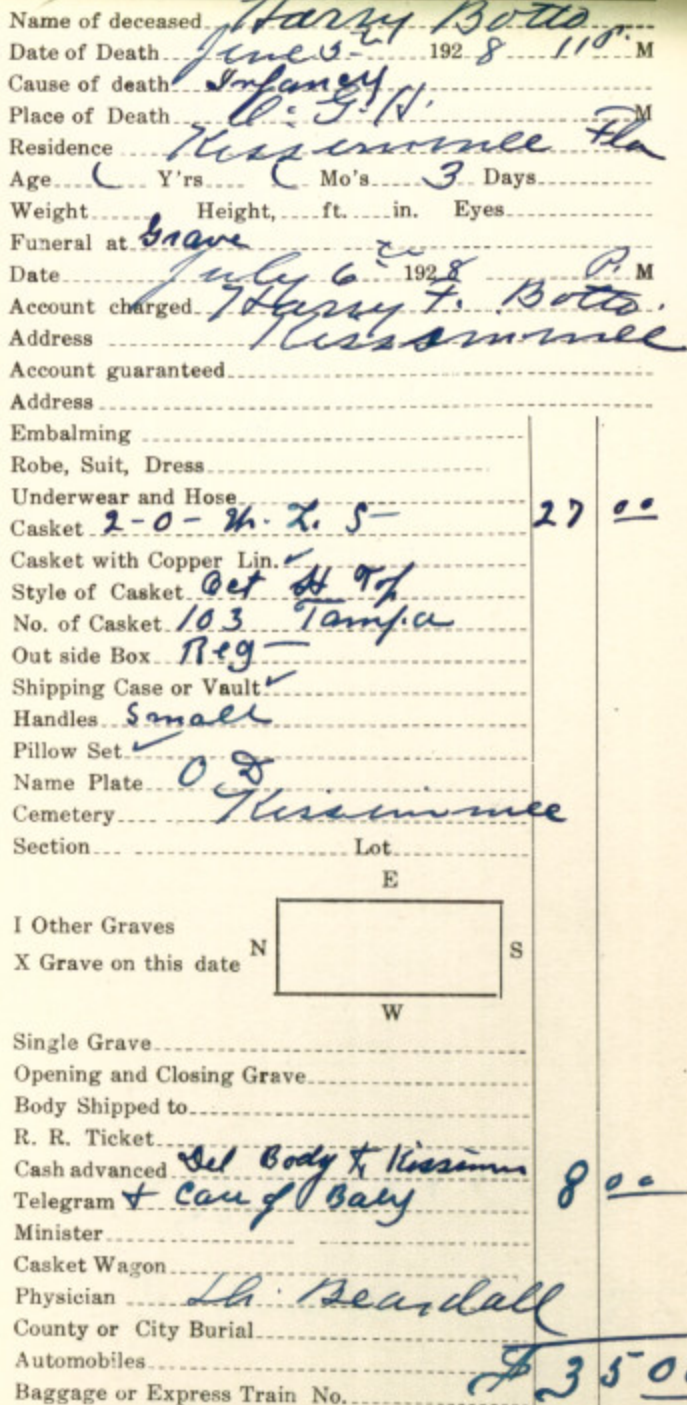 Name of deceased Harry Botto
Date of Death June 5th 1928 11 P. M
Cause of death Infancy
Place of Death O. G. H. M
Residence Kissimmee Fla
Age ( Y'rs ( Mo's 3 Days
Weight Height, ft. in. Eyes
Funeral at Grave
Date July 6th 1928 P. M
Account charged Harry F. Botto.
Address Kissimmee
Account guaranteed
Address
Embalming
Robe, Suit, Dress
Underwear and Hose
Casket 2-0- W. L. S 27 00
Casket with Copper Lin. ✓
Style of Casket Oct Top
No. of Casket 103 Tampa
Out side Box Reg
Shipping Case or Vault ✓
Handles Small
Pillow Set ✓
Name Plate O D
Cemetery Kissimmee
Section Lot
E
I Other Graves
N S
X Grave on this date
W
Single Grave
Opening and Closing Grave
Body Shipped to
R. R. Ticket
Cash advanced Del Body to Kissimm 8 00
Telegram + Care of Baby
Minister
Casket Wagon
Physician Dr. Beardall
County or City Burial
Automobiles $ 35 00
Baggage or Express Train No.